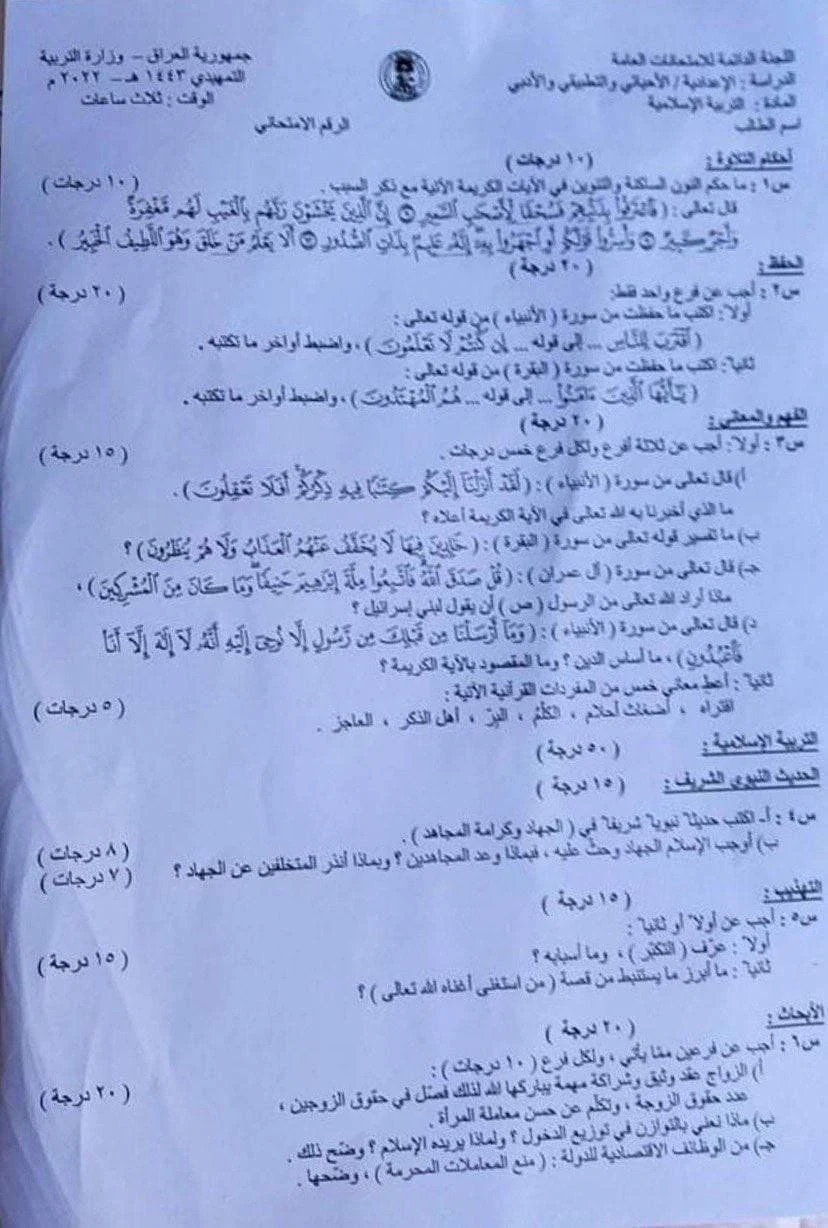 اللجنة الدائمة للامتحانات العامة
الدراسة : الإعدادية / الأحيائي والتطبيقي والأدبي
المادة : التربية الإسلامية
اسم الطالب
جمهورية العراق - وزارة التربية
التمهيدي ١٤٤٣ هـ - ٢٠٢٢ م
الوقت : ثلاث ساعات
الرقم الامتحاني
أحكام التلاوة : ( ١٠ درجات )
س١ : ما حكم النون الساكنة والتنوين في الآيات الكريمة الآتية مع ذكر السبب . ( ١٠ درجات )
قال تعالى : ( فَاعْتَرَفُوا بِذَنْبِهِمْ فَسُحْقًا لِأَصْحَابِ السَّعِيرِ ۝ إِنَّ الَّذِينَ يَخْشَوْنَ رَبَّهُمْ بِالْغَيْبِ لَهُمْ مَغْفِرَةٌ
وَأَجْرٌ كَبِيرٌ ۝ وَأَسِرُّوا قَوْلَكُمْ أَوِ اجْهَرُوا بِهِ إِنَّهُ عَلِيمٌ بِذَاتِ الصُّدُورِ ۝ أَلَا يَعْلَمُ مَنْ خَلَقَ وَهُوَ اللَّطِيفُ الْخَبِيرُ ) .
الحفظ : ( ٢٠ درجة )
س٢ : أجب عن فرع واحد فقط: ( ٢٠ درجة )
أولاً: اكتب ما حفظت من سورة ( الأنبياء ) من قوله تعالى :
( اقْتَرَبَ لِلنَّاسِ ... إلى قوله ... إِنْ كُنْتُمْ لَا تَعْلَمُونَ ) ، واضبط أواخر ما تكتبه .
ثانياً: اكتب ما حفظت من سورة ( البقرة ) من قوله تعالى :
( يَا أَيُّهَا الَّذِينَ آمَنُوا ... إلى قوله ... هُمُ الْمُهْتَدُونَ ) ، واضبط أواخر ما تكتبه .
الفهم والمعاني : ( ٢٠ درجة )
س٣ : أولاً: أجب عن ثلاثة أفرع ولكل فرع خمس درجات . ( ١٥ درجة )
أ) قال تعالى من سورة ( الأنبياء ) : ( لَقَدْ أَنْزَلْنَا إِلَيْكُمْ كِتَابًا فِيهِ ذِكْرُكُمْ أَفَلَا تَعْقِلُونَ ) .
ما الذي أخبرنا به الله تعالى في الآية الكريمة أعلاه ؟
ب) ما تفسير قوله تعالى من سورة ( البقرة ) : ( خَالِدِينَ فِيهَا لَا يُخَفَّفُ عَنْهُمُ الْعَذَابُ وَلَا هُمْ يُنْظَرُونَ ) ؟
جـ) قال تعالى من سورة ( آل عمران ) : ( قُلْ صَدَقَ اللَّهُ فَاتَّبِعُوا مِلَّةَ إِبْرَاهِيمَ حَنِيفًا وَمَا كَانَ مِنَ الْمُشْرِكِينَ ) ،
ماذا أراد الله تعالى من الرسول ( ص ) أن يقول لبني إسرائيل ؟
د) قال تعالى من سورة ( الأنبياء ) : ( وَمَا أَرْسَلْنَا مِنْ قَبْلِكَ مِنْ رَسُولٍ إِلَّا نُوحِي إِلَيْهِ أَنَّهُ لَا إِلَٰهَ إِلَّا أَنَا
فَاعْبُدُونِ ) ، ما أساس الدين ؟ وما المقصود بالآية الكريمة ؟
ثانياً : أعطِ معاني خمس من المفردات القرآنية الآتية : ( ٥ درجات )
افتراه ، أضغاث أحلام ، الكَلِمُ ، البرّ ، أهل الذكر ، العاجز .
التربية الإسلامية : ( ٥٠ درجة )
الحديث النبوي الشريف : ( ١٥ درجة )
س٤ : أـ اكتب حديثاً نبوياً شريفاً في ( الجهاد وكرامة المجاهد ) . ( ٨ درجات )
ب) أوجب الإسلام الجهاد وحثّ عليه ، فبماذا وعد المجاهدين ؟ وبماذا أنذر المتخلفين عن الجهاد ؟ ( ٧ درجات )
التهذيب : ( ١٥ درجة )
س٥ : أجب عن أولاً أو ثانياً :
أولاً : عرّف ( التكبّر ) ، وما أسبابه ؟ ( ١٥ درجة )
ثانياً : ما أبرز ما يستنبط من قصة ( من استغنى أغناه الله تعالى ) ؟
الأبحاث : ( ٢٠ درجة )
س٦ : أجب عن فرعين مما يأتي ، ولكل فرع ( ١٠ درجات ) :
أ) الزواج عقد وثيق وشراكة مهمة يباركها الله لذلك فصّل في حقوق الزوجين ، ( ٢٠ درجة )
عدد حقوق الزوجة ، وتكلّم عن حسن معاملة المرأة .
ب) ماذا نعني بالتوازن في توزيع الدخول ؟ ولماذا يريده الإسلام ؟ وضّح ذلك .
جـ) من الوظائف الاقتصادية للدولة : ( منع المعاملات المحرمة ) ، وضّحها .